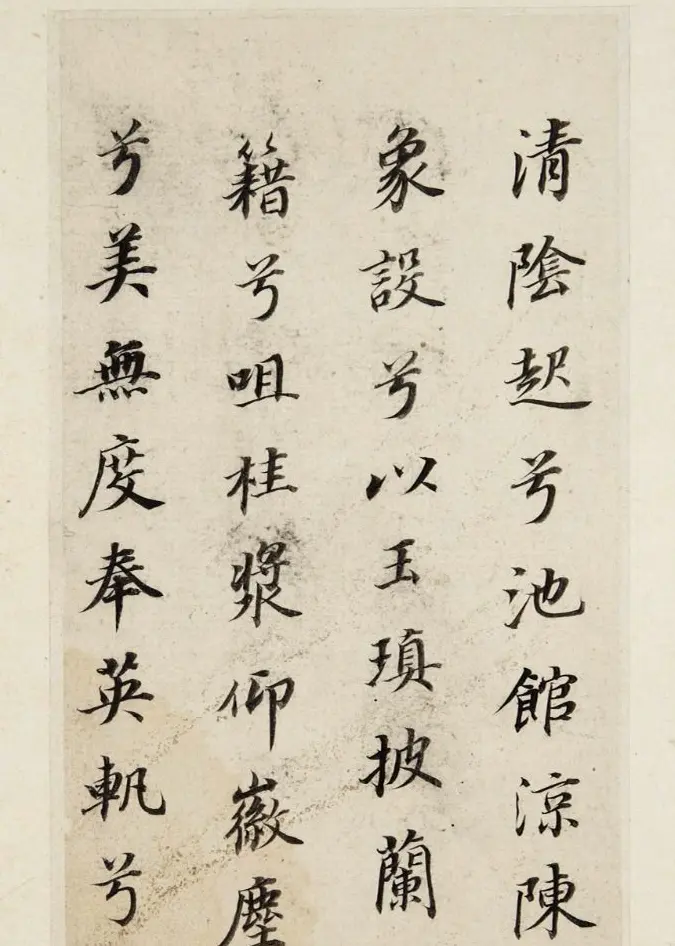 清陰起兮池館涼陳
象設兮以玉瑱披蘭
籍兮咀桂漿仰徽塵
兮美無度奉英軓兮